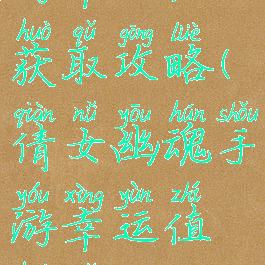 huò qǔ gōng lüè
获取攻略(
qiàn nǚ yōu hún shǒu
倩女幽魂手
yóu xìng yùn zhí
游幸运值